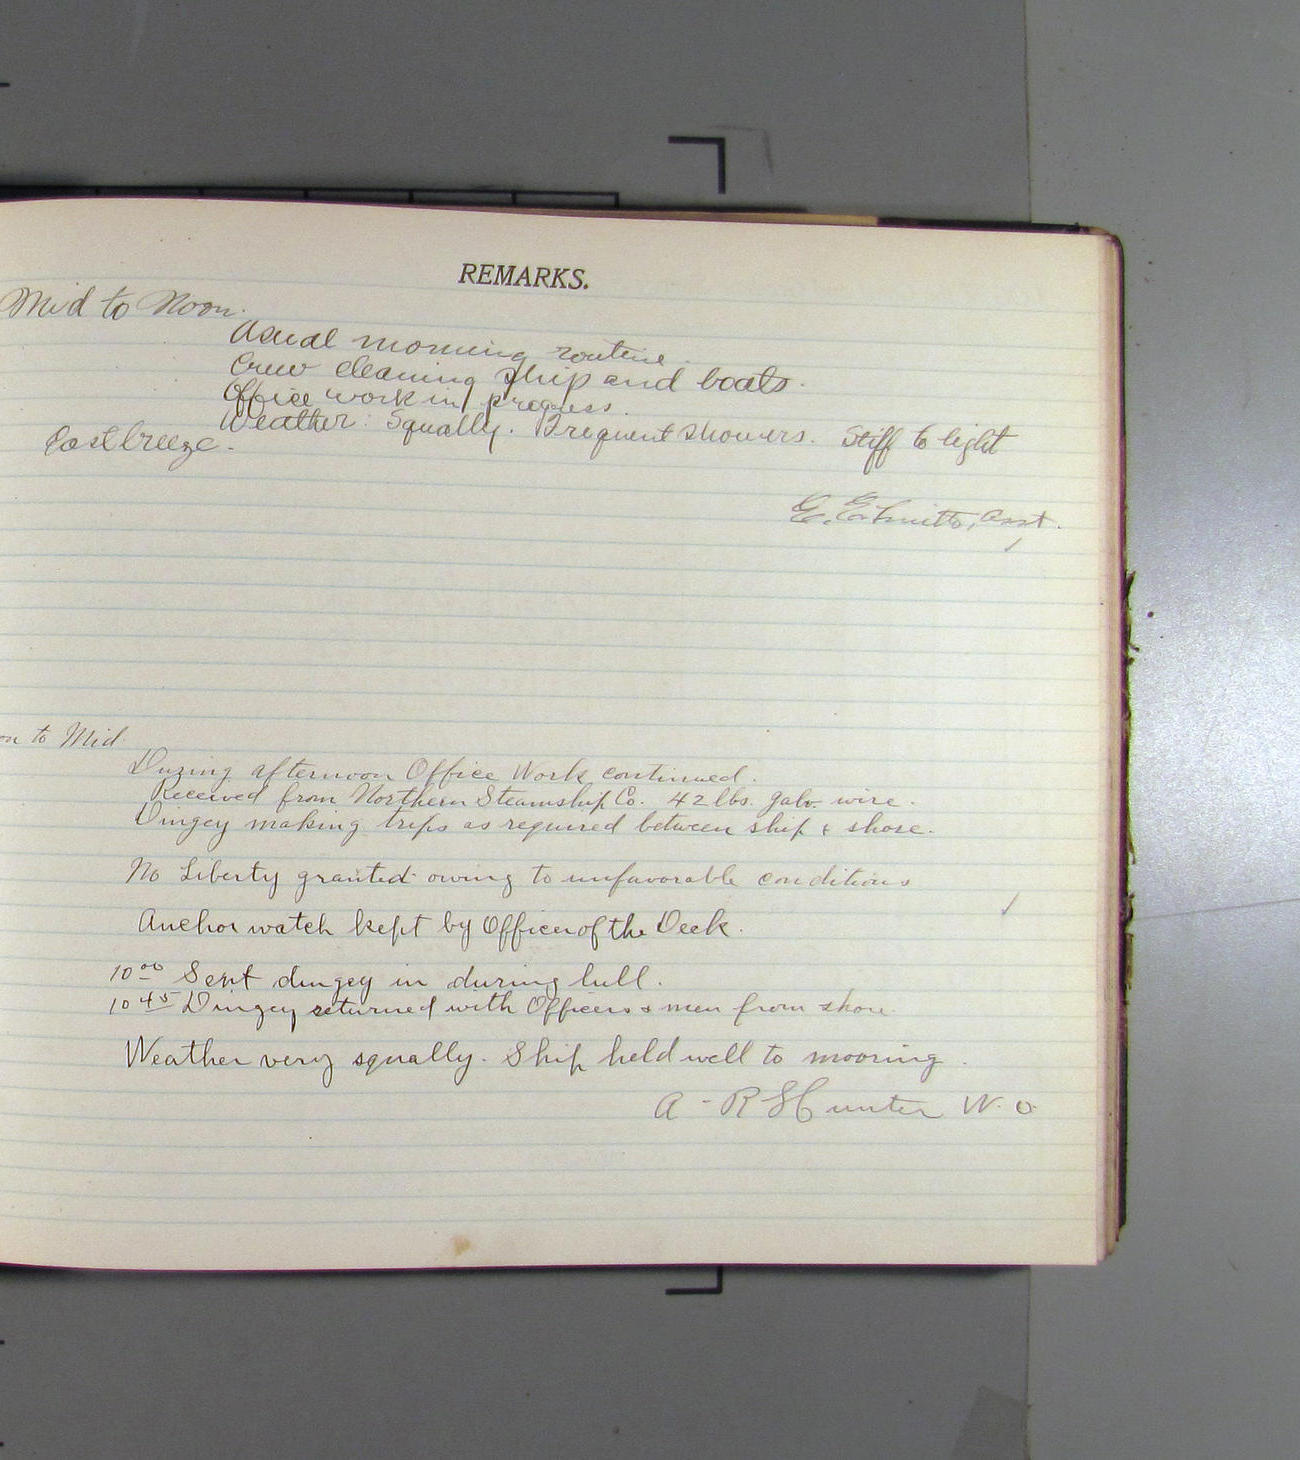 REMARKS.
Mid to Noon.
Usual morning routine.
Crew cleaning ship and boats.
Office work in progress.
Weather: Squally. Frequent showers. Stiff to light
East breeze.
E. E. Smith, Asst.
on to Mid
During afternoon Office Work continued.
Received from Northern Steamship Co. 42 lbs. galv. wire.
Dingey making trips as required between ship & shore.
No Liberty granted owing to unfavorable conditions
Anchor watch kept by Officer of the Deck.
10 00 Sent dingey in during lull.
10 45 Dingey returned with Officers & men from shore.
Weather very squally. Ship held well to mooring.
A. R. Hunter W. O.